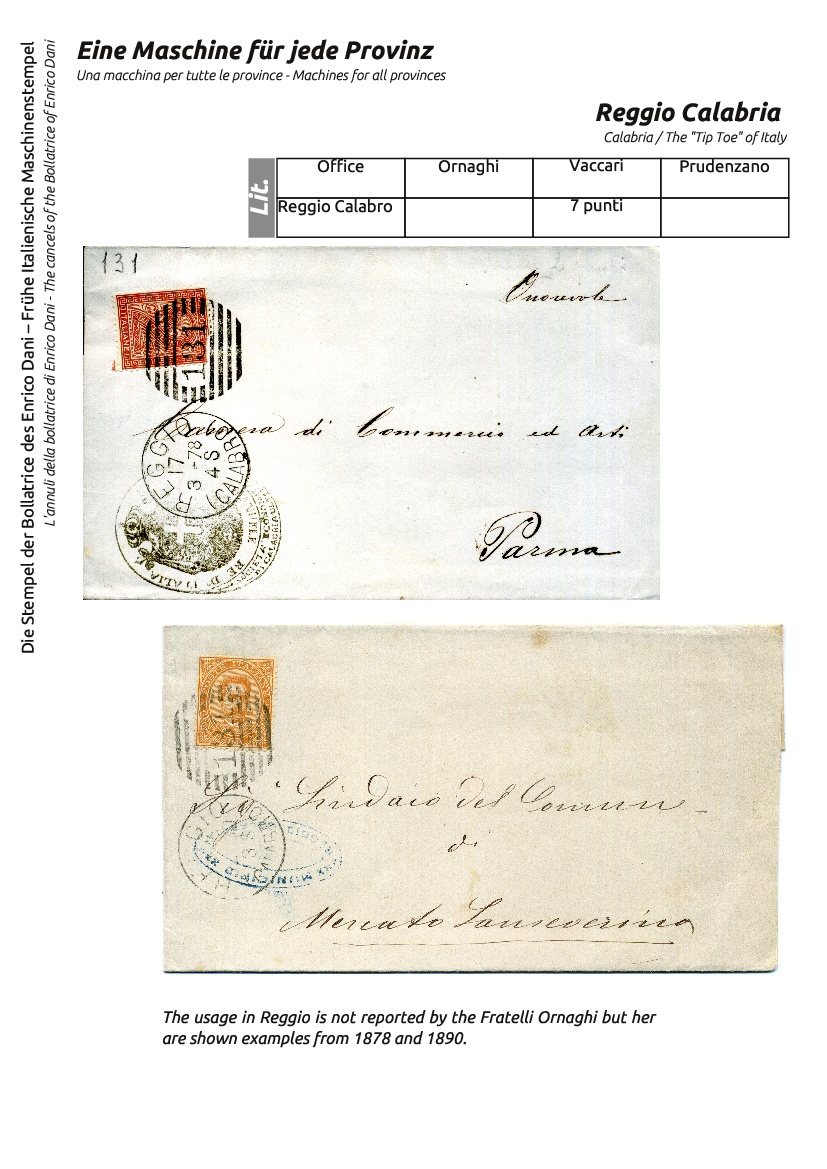 Die Stempel der Bollatrice des Enrico Dani – Frühe Italienische Maschinenstempel
L'annuli della bollatrice di Enrico Dani - The cancels of the Bollatrice of Enrico Dani
Eine Maschine für jede Provinz
Una macchina per tutte le province - Machines for all provinces
Reggio Calabria
Calabria / The "Tip Toe" of Italy
Lit.
Office Ornaghi Vaccari Prudenzano
Reggio Calabro 7 punti
131
Onorevole
131
Camera di Commercio ed Arti
REGGIO
17
3 - 78
4 S
(CALABRO)
RE D'ITALIA
Parma
Sindaco del Comun
di
MUNICIPIO
Mercato Sanseverino
The usage in Reggio is not reported by the Fratelli Ornaghi but her
are shown examples from 1878 and 1890.